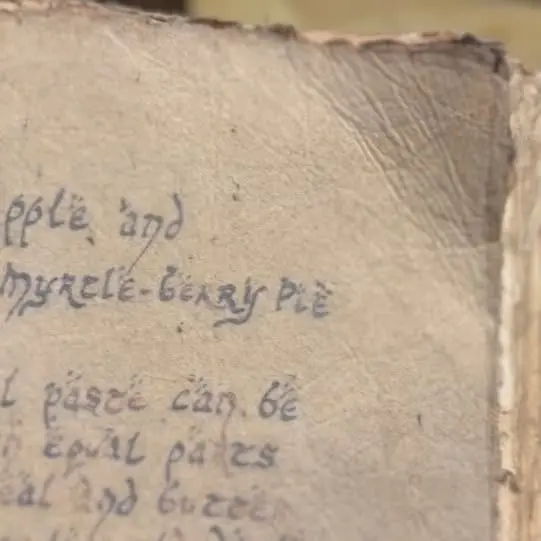 pple and
myrtle-berry pie
l paste can be
n equal parts
eal and butter